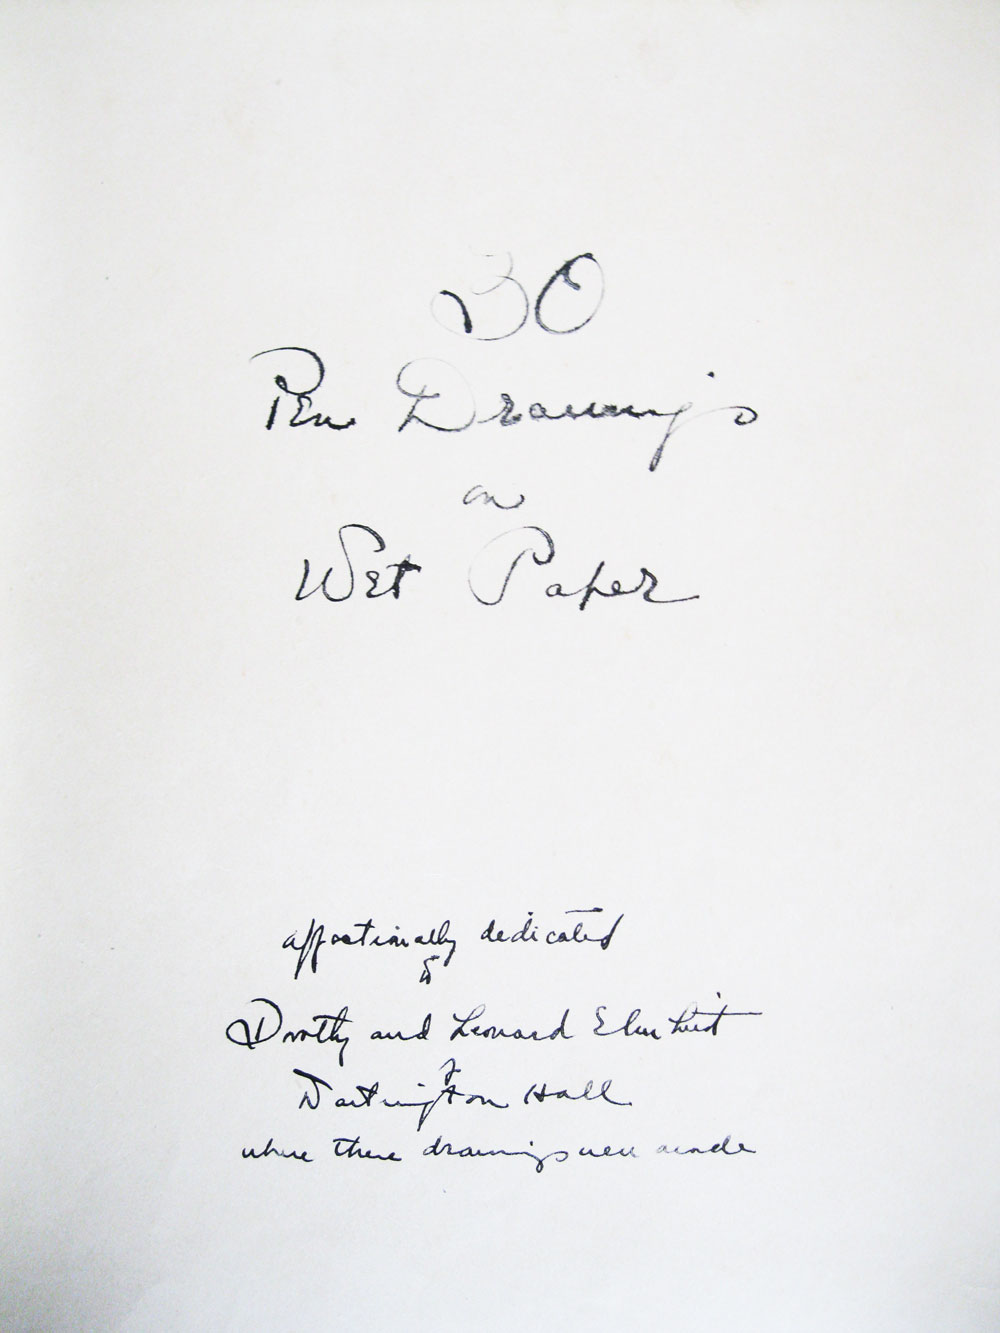 30
Pen Drawings
on
Wet Paper
affectionally dedicated
to
Dorothy and Leonard Elmhirst
of
Dartington Hall
where these drawings were made